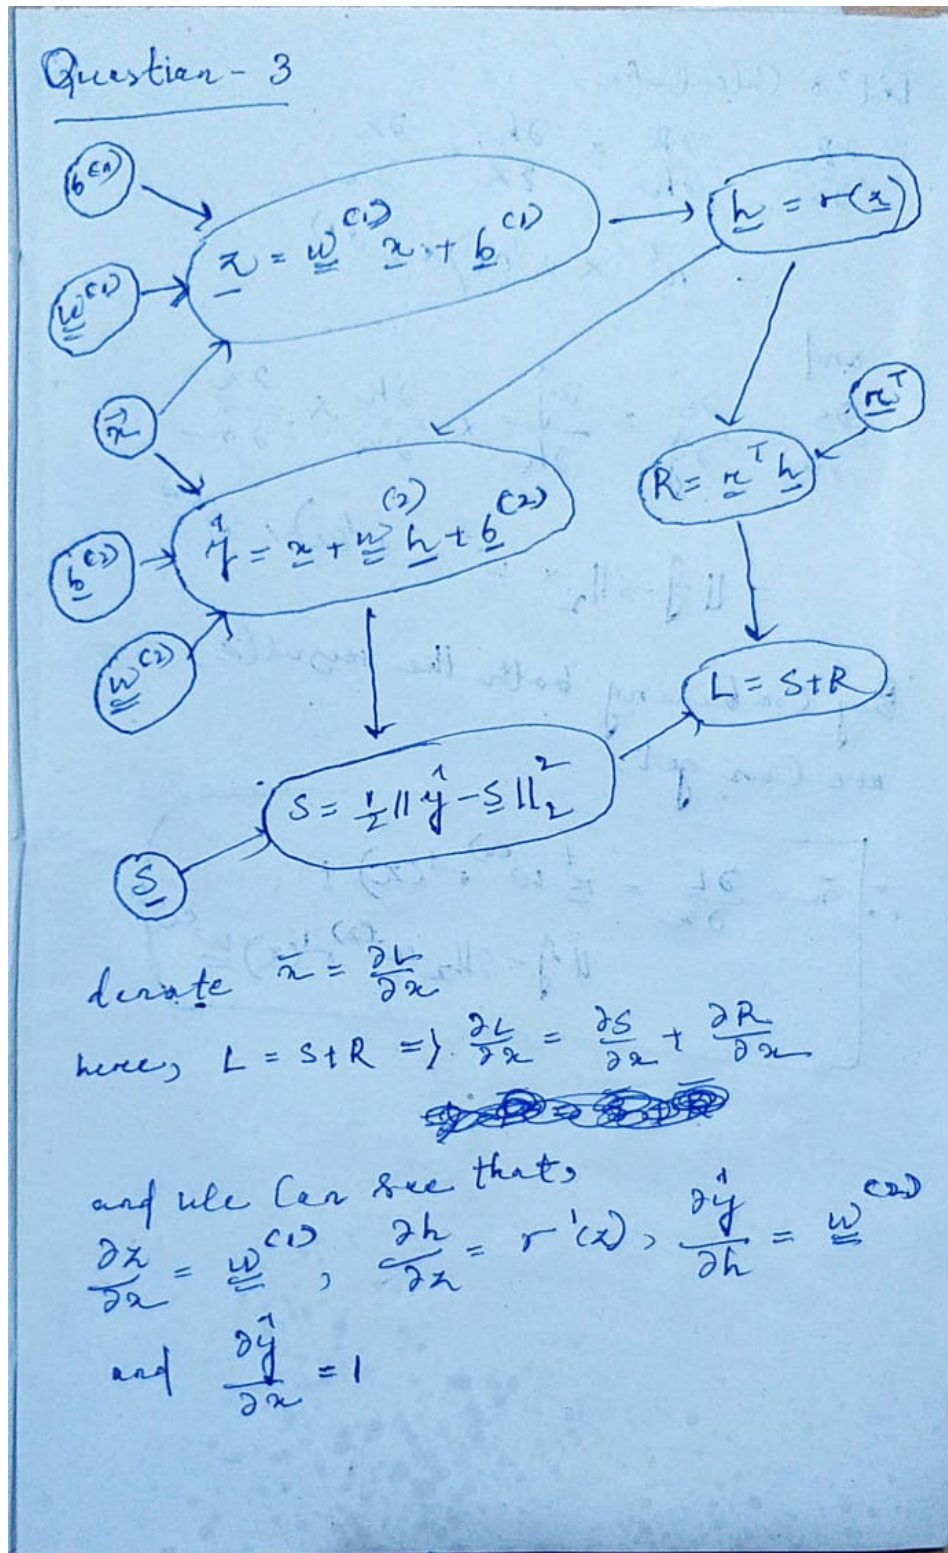 Question - 3
b⁽¹⁾
z = w⁽¹⁾ x + b⁽¹⁾
h = r(z)
w⁽¹⁾
x
r^T
R = r^T h
ŷ = x + w⁽²⁾ h + b⁽²⁾
b⁽²⁾
w⁽²⁾
L = S+R
S = 1/2 || ŷ - S ||₂²
S
denote x̄ = ∂L/∂x
here, L = S+R => ∂L/∂x = ∂S/∂x + ∂R/∂x
and we Can see that,
∂z/∂x = w⁽¹⁾, ∂h/∂z = r'(z), ∂ŷ/∂h = w⁽²⁾
and ∂ŷ/∂x = 1